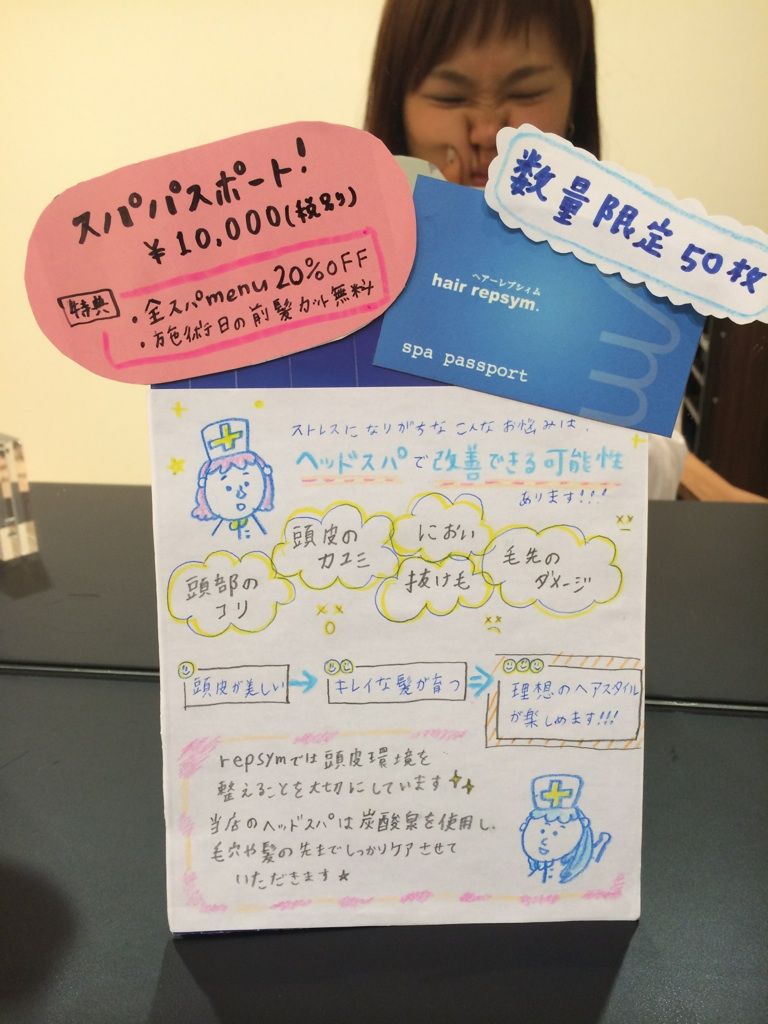 スパパスポート!
¥10,000(税別)
特典
・全スパmenu 20%OFF
・施術日の前髪カット無料
数量限定50枚
ヘアーレプシィム
hair repsym.
spa passport
ストレスになりがちなこんなお悩みは、
ヘッドスパで改善できる可能性
あります!!!
頭皮のカユミ
におい
頭部のコリ
抜け毛
毛先のダメージ
頭皮が美しい
キレイな髪が育つ
理想のヘアスタイル
が楽しめます!!!
repsymでは頭皮環境を
整えることを大切にしています
当店のヘッドスパは炭酸泉を使用し、
毛穴や髪の先までしっかりケアさせて
いただきます★